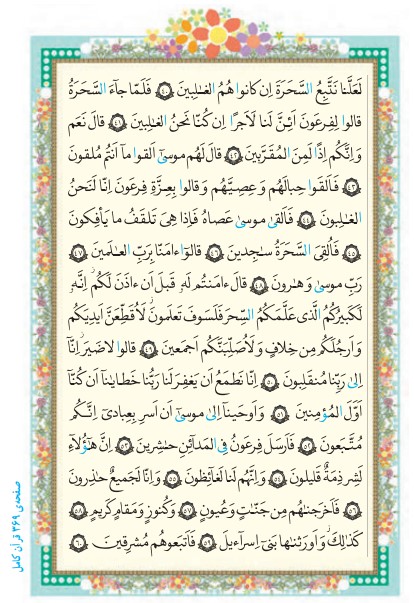 لَعَلَّنا نَتَّبِعُ السَّحَرَةَ اِن کانوا هُمُ الغالِبینَ ﴿٤٠﴾ فَلَمّا جاءَ السَّحَرَةُ
قالوا لِفِرعَونَ اَئِنَّ لَنا لَاَجرًا اِن کُنّا نَحنُ الغالِبینَ ﴿٤١﴾ قالَ نَعَم
وَ اِنَّکُم اِذًا لَمِنَ المُقَرَّبینَ ﴿٤٢﴾ قالَ لَهُم موسیٰ اَلقوا ما اَنتُم مُلقونَ
﴿٤٣﴾ فَاَلقَوا حِبالَهُم وَ عِصِیَّهُم وَ قالوا بِعِزَّةِ فِرعَونَ اِنّا لَنَحنُ
الغالِبونَ ﴿٤٤﴾ فَاَلقیٰ موسیٰ عَصاهُ فَاِذا هِیَ تَلقَفُ ما یَأفِکونَ
﴿٤٥﴾ فَاُلقِیَ السَّحَرَةُ ساجِدینَ ﴿٤٦﴾ قالوا ءامَنّا بِرَبِّ العالَمینَ ﴿٤٧﴾
رَبِّ موسیٰ وَ هارونَ ﴿٤٨﴾ قالَ ءامَنتُم لَهو قَبلَ اَن ءاذَنَ لَکُم اِنَّهو
لَکَبیرُکُمُ الَّذی عَلَّمَکُمُ السِّحرَ فَلَسَوفَ تَعلَمونَ لَاُقَطِّعَنَّ اَیدِیَکُم
وَ اَرجُلَکُم مِن خِلافٍ وَ لَاُصَلِّبَنَّکُم اَجمَعینَ ﴿٤٩﴾ قالوا لا ضَیرَ اِنّا
اِلیٰ رَبِّنا مُنقَلِبونَ ﴿٥٠﴾ اِنّا نَطمَعُ اَن یَغفِرَ لَنا رَبُّنا خَطایانا اَن کُنّا
اَوَّلَ المُؤمِنینَ ﴿٥١﴾ وَ اَوحَینا اِلیٰ موسیٰ اَن اَسرِ بِعِبادی اِنَّکُم
مُتَّبَعونَ ﴿٥٢﴾ فَاَرسَلَ فِرعَونُ فِی المَدائِنِ حاشِرینَ ﴿٥٣﴾ اِنَّ هٰؤُلاءِ
لَشِرذِمَةٌ قَلیلونَ ﴿٥٤﴾ وَ اِنَّهُم لَنا لَغائِظونَ ﴿٥٥﴾ وَ اِنّا لَجَمیعٌ حاذِرونَ
﴿٥٦﴾ فَاَخرَجناهُم مِن جَنّاتٍ وَ عُیونٍ ﴿٥٧﴾ وَ کُنوزٍ وَ مَقامٍ کَریمٍ ﴿٥٨﴾
کَذٰلِکَ وَ اَورَثناها بَنی اِسراءیلَ ﴿٥٩﴾ فَاَتبَعوهُم مُشرِقینَ ﴿٦٠﴾
صفحه‌ی ۳۶۹ قرآن کامل